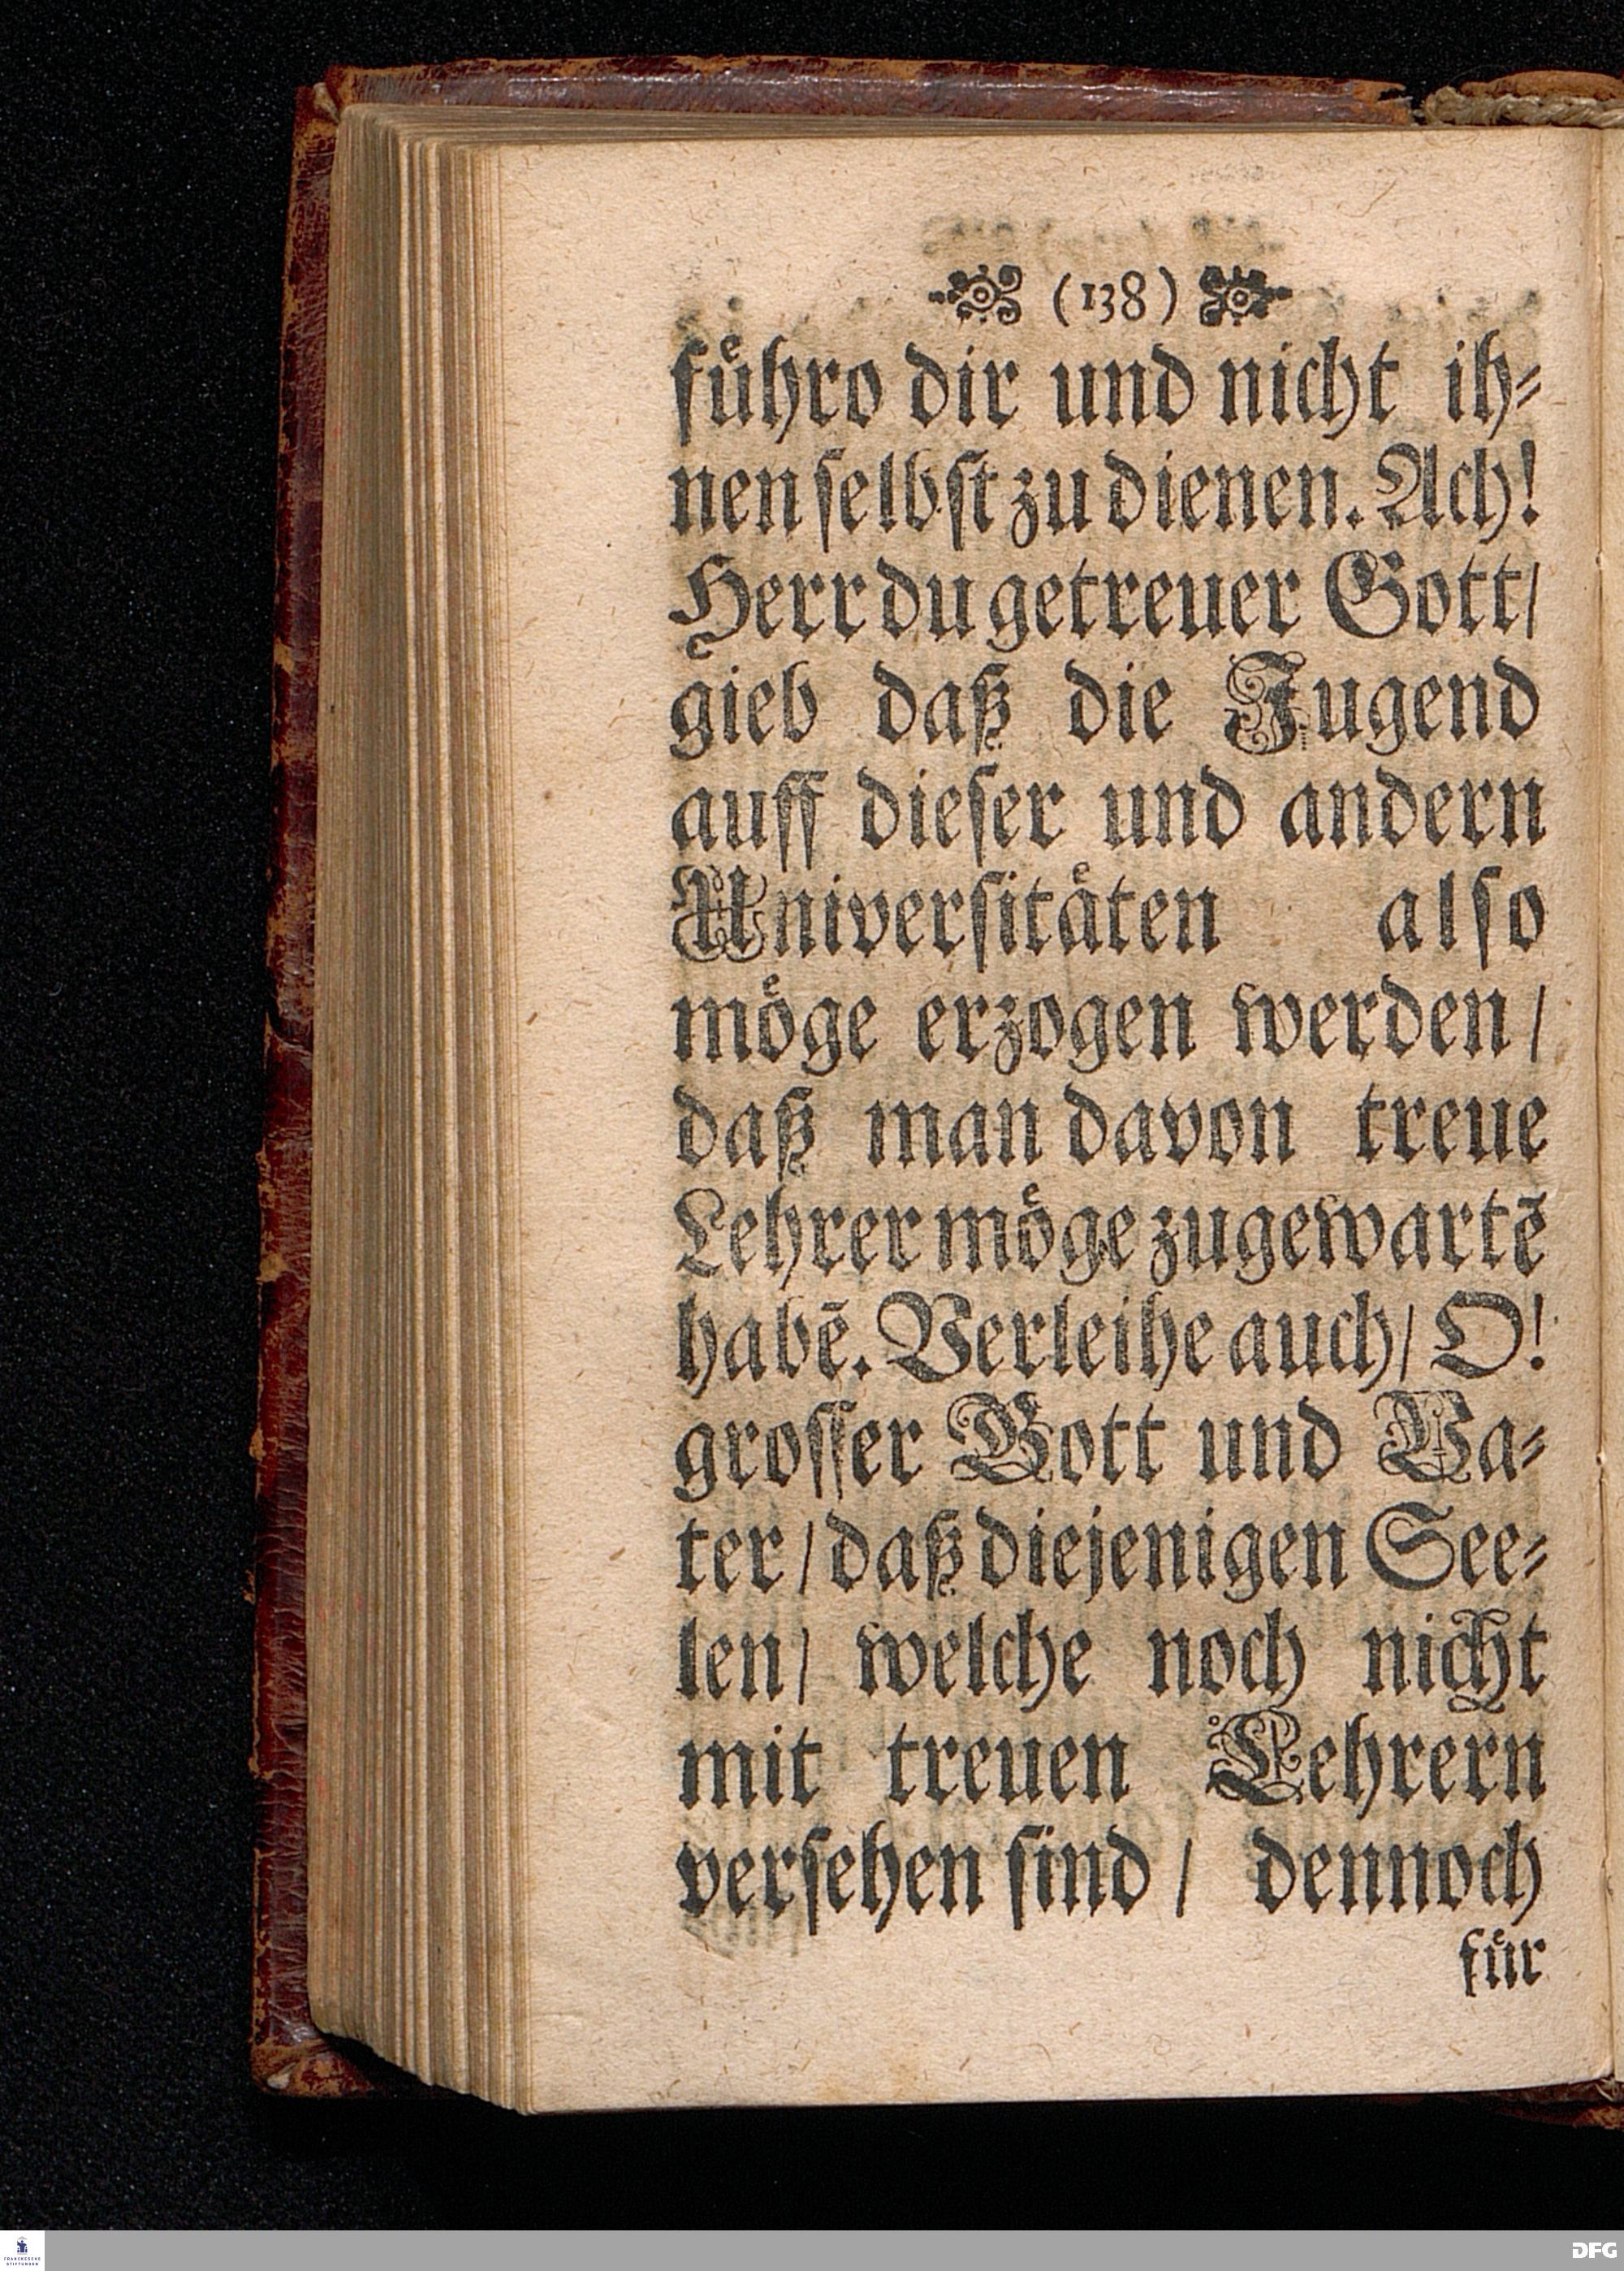 (138)
fuͤhro dir und nicht ih⸗
nen ſelbſt zu dienen. Ach!
Herr du getreuer Gott/
gieb daß die Jugend
auff dieſer und andern
Univerſitaͤten alſo
moͤge erzogen werden/
daß man davon treue
Lehrer moͤge zugewartẽ
habẽ. Verleihe auch/ O!
groſſer Gott und Va⸗
ter/ daß diejenigen See⸗
len/ welche noch nicht
mit treuen Lehrern
verſehen ſind/ dennoch
fuͤr
FRANCKESCHE
STIFTUNGEN
DFG